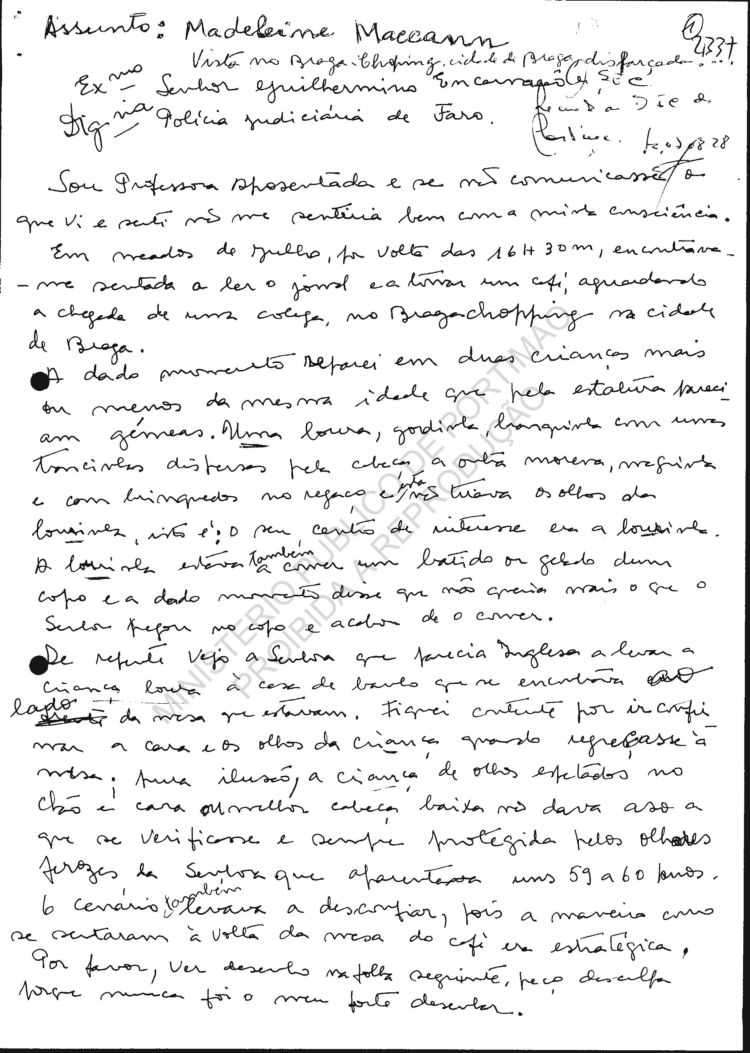 Assunto: Madeleine Maccann
1
2337
Vista no Braga Chopping, cidade de Braga, disfarçada...
Ex.mo Senhor Guilhermino Encarnação
Dig.na Polícia judiciária de Faro.
Sou Professora Aposentada e se não comunicasse o
que vi e senti não me sentiria bem com a minha consciência.
Em meados de Julho, por volta das 16H 30m, encontrava-
-me sentada a ler o jornal e a tomar um café, aguardando
a chegada de uma colega, no Bragachopping na cidade
de Braga.
A dado momento reparei em duas crianças mais
ou menos da mesma idade que pela estatura pareci-
am gémeas. Uma loura, godinha, branquinha com umas
trancinhas dispersas pela cabeça a outra morena, magrinha
e com brinquedos no regaço e esta não tirava os olhos da
lourinha, isto é: o seu centro de interesse era a lourinha.
A lourinha estava também a comer um batido ou gelado dum
copo e a dado momento disse que não queria mais o que o
Senhor pegou no copo e acabou de o comer.
De repente vejo a Senhora que parecia Inglesa a levar a
criança loura à casa de banho que se encontrava ao
lado da mesa que estavam. Fiquei contente por ir confir
mar a cara e os olhos da criança quando regreçasse à
mesa. Pura ilusão, a criança de olhos espetados no
chão e cara ou melhor cabeça baixa não dava aso a
que se verificasse e sempre protegida pelos olhares
ferozes da Senhora que aparentava uns 59 a 60 anos.
O cenário também levava a desconfiar, pois a maneira como
se sentaram à volta da mesa do café era estratégica.
Por favor, ver desenho na folha seguinte, peço desculpa
porque nunca foi o meu forte desenhar.
MINISTÉRIO PÚBLICO DE PORTIMÃO
PROIBIDA A REPRODUÇÃO